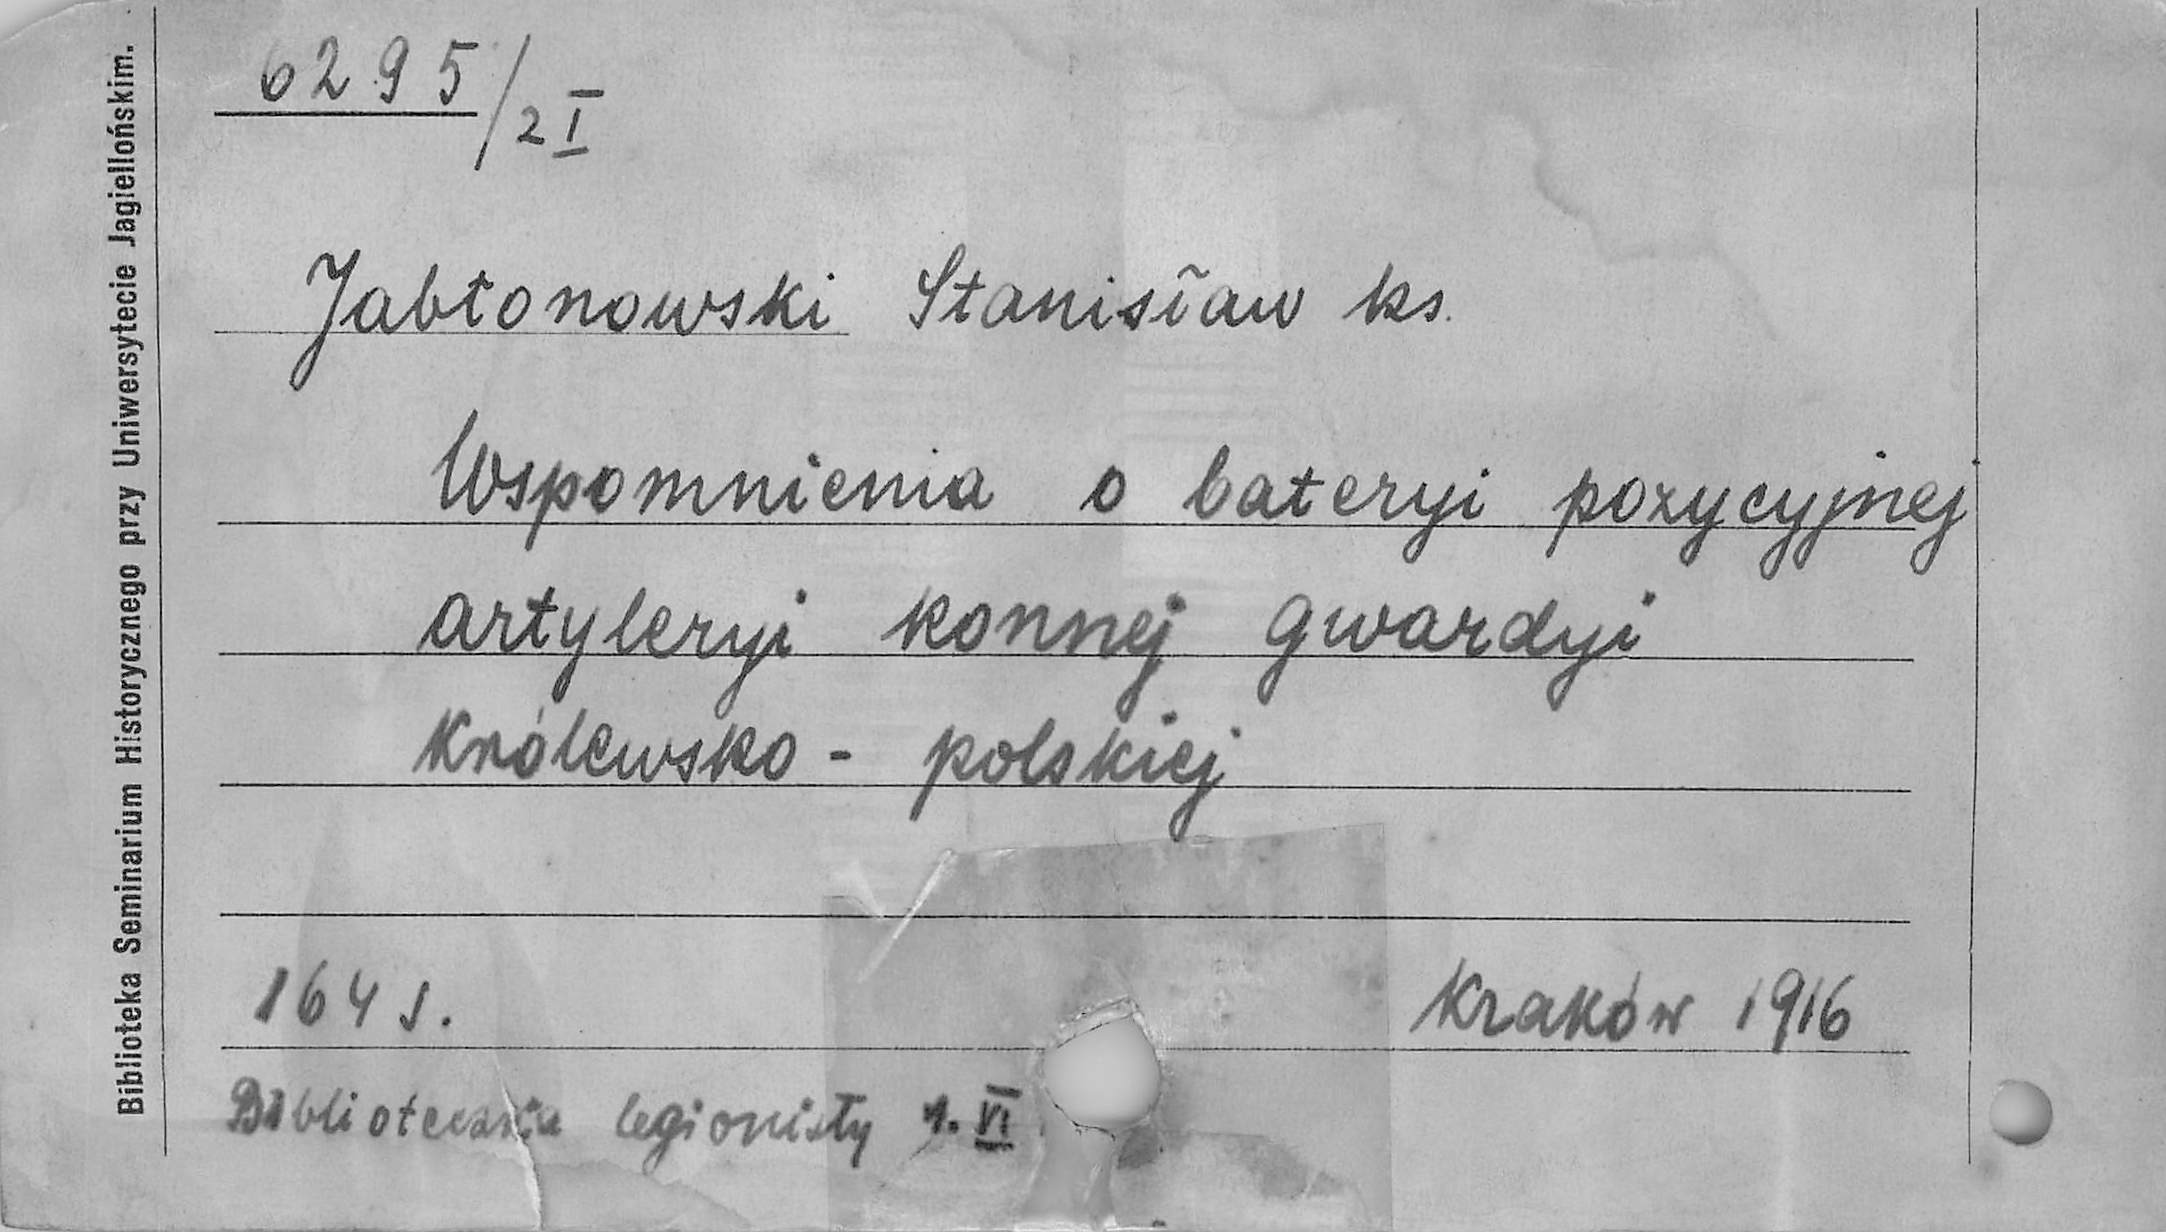 Biblioteka Seminarium Historycznego przy Uniwersytecie Jagiellońskim.
6295/2 I
Jabłonowski Stanisław ks.
Wspomnienia o bateryi pozycyjnej
artyleryi konnej gwardyi
Królewsko - polskiej
164 s.
Kraków 1916
Biblioteczka legionisty t. VI